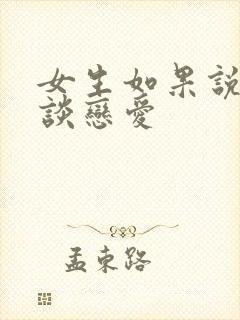 女生如果說
談戀愛
孟束路